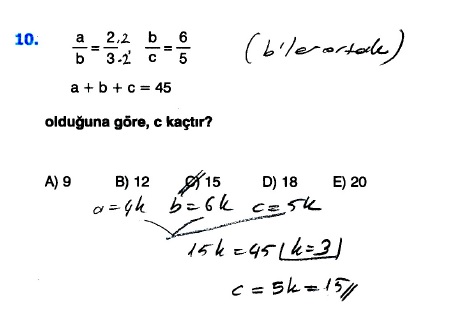 10. a/b = 2.2/3.2, b/c = 6/5 (b'ler ortak)
a + b + c = 45
olduğuna göre, c kaçtır?
A) 9 B) 12 C) 15 D) 18 E) 20
a = 4k b = 6k c = 5k
15k = 45 k = 3
c = 5k = 15//